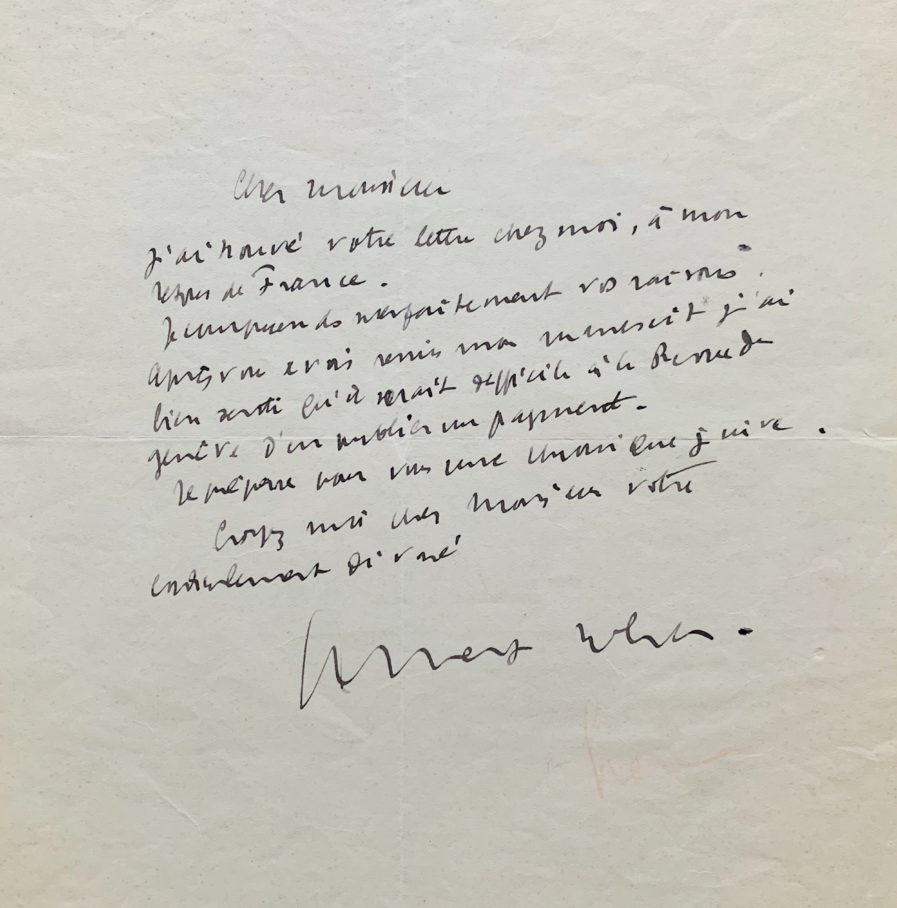 Cher Monsieur
J'ai trouvé votre lettre chez moi, à mon
retour de France.
Je comprends parfaitement vos raisons.
Après vous avoir remis mon manuscrit j'ai
bien senti qu'il serait difficile à la Revue de
Genève d'en publier un fragment.
Je prépare pour vous une chronique juive.
Croyez moi cher Monsieur votre
cordialement dévoué